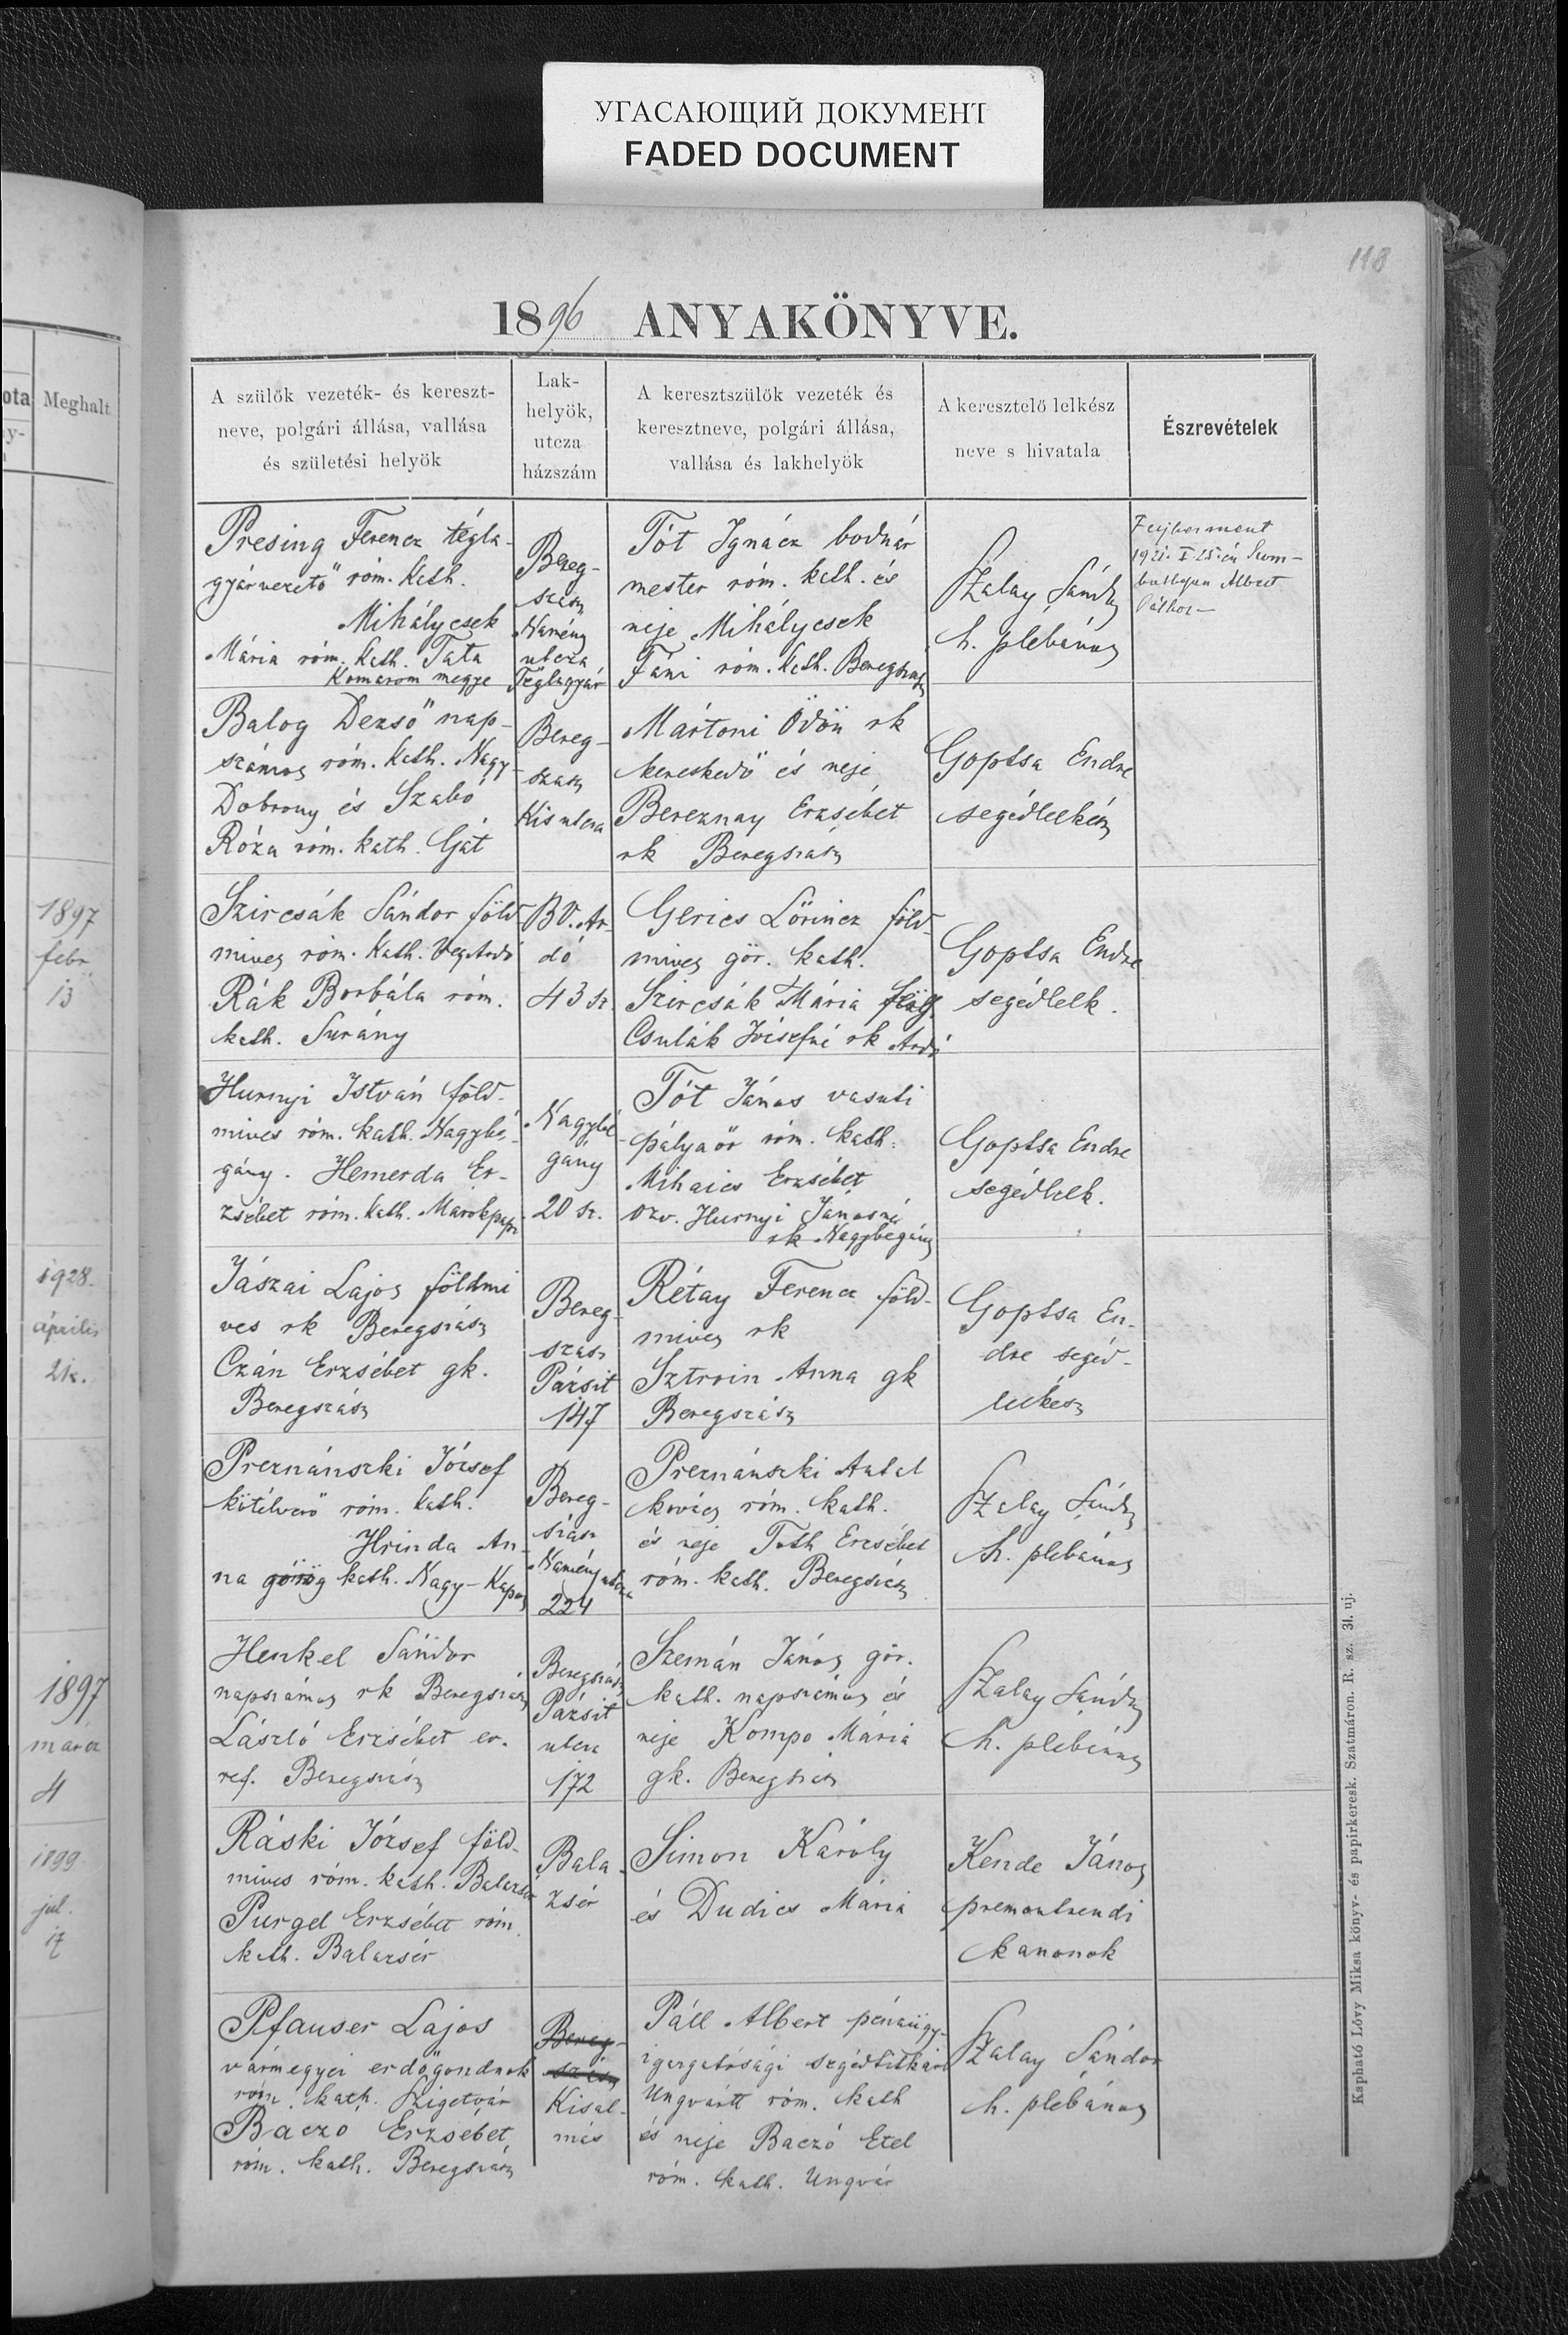 УГАСАЮЩИЙ ДОКУМЕНТ
FADED DOCUMENT
118
1896 ANYAKÖNYVE.
ota
Meghalt
1897
febr
13
1928.
április
21.
1897
marcz
4
1899.
jul.
17
A szülők vezeték- és kereszt-
neve, polgári állása, vallása
és születési helyök
Lak-
helyök,
utcza
házszám
A keresztszülők vezeték és
keresztneve, polgári állása,
vallása és lakhelyök
A keresztelő lelkész
neve s hivatala
Észrevételek
Presing Ferencz tégla-
gyárvezető róm. kath.
Mihálycsek
Mária róm. kath. Tata
Komárom megye
Bereg-
szász
Namény
utcza
Téglagyár
Tót Ignácz bodnár
mester róm. kath. és
neje Mihálycsek
Fáni róm. kath. Beregszász
Szalay Sándor
h. plebános
192 I 25-én
Albert
Balog Dezső nap-
számos róm. kath. Nagy-
Dobrony és Szabó
Róza róm. kath. Gát
Bereg-
szász
Kis utcza
Mártoni Ödön rk
kereskedő és neje
Bereznay Erzsébet
rk Beregszász
Goptsa Endre
segédlelkész
Szircsák Sándor föld-
míves róm. kath. VégArdó
Rák Borbála róm.
kath. Surány
BV. Ar-
dó
43 sz.
Gerics Lőrincz föld-
míves gör. kath.
Szircsák Mária
Csulák Józsefné rk Ardó
Goptsa Endre
segédlelk.
Hurnyi István föld-
míves róm. kath. Nagybé-
gány. Hemerda Er-
zsébet róm. kath. Márokpapi
Nagybé-
gány
20 sz.
Tót János vasuti
pályaőr róm. kath.
Mihaics Erzsébet
özv. Hurnyi Jánosné
rk Nagybégány
Goptsa Endre
segédlelk.
Jászai Lajos földmí
ves rk Beregszász
Czán Erzsébet gk.
Beregszász
Bereg-
szász
Pázsit
147
Rétay Ferencz föld-
míves rk
Sztroin Anna gk
Beregszász
Goptsa En-
dre segéd-
lelkész
Preznánszki József
kötélverő róm. kath.
Hrinda An-
na görög kath. Nagy-Kapos
Bereg-
szász
Namény utcza
224
Preznánszki Antal
kovács róm. kath.
és neje Toth Erzsébet
róm. kath. Beregszász
Szalay Sándor
h. plebános
Henkel Sándor
napszámos rk Beregszász
László Erzsébet ev.
ref. Beregszász
Beregszász
Pázsit
utcza
172
Szemán János gör.
kath. napszámos és
neje Kompo Mária
gk. Beregszász
Szalay Sándor
h. plebános
Ráski József föld-
míves róm. kath. Balazsér
Purgel Erzsébet róm.
kath. Balazsér
Bala-
zsér
Simon Károly
és Dudics Mária
Kende János
premontrendi
kanonok
Pfauser Lajos
vármegyei erdőgondnok
róm. kath. Szigetvár
Baczó Erzsébet
róm. kath. Beregszász
Bereg-
szász
Kisal-
más
Páll Albert pénzügy-
igazgatósági segédtitkár
Ungvártt róm. kath
és neje Baczó Etel
róm. kath. Ungvár
Szalay Sándor
h. plebános
Kapható Lövy Miksa könyv- és papirkeresk. Szatmáron. R. sz. 3l. uj.